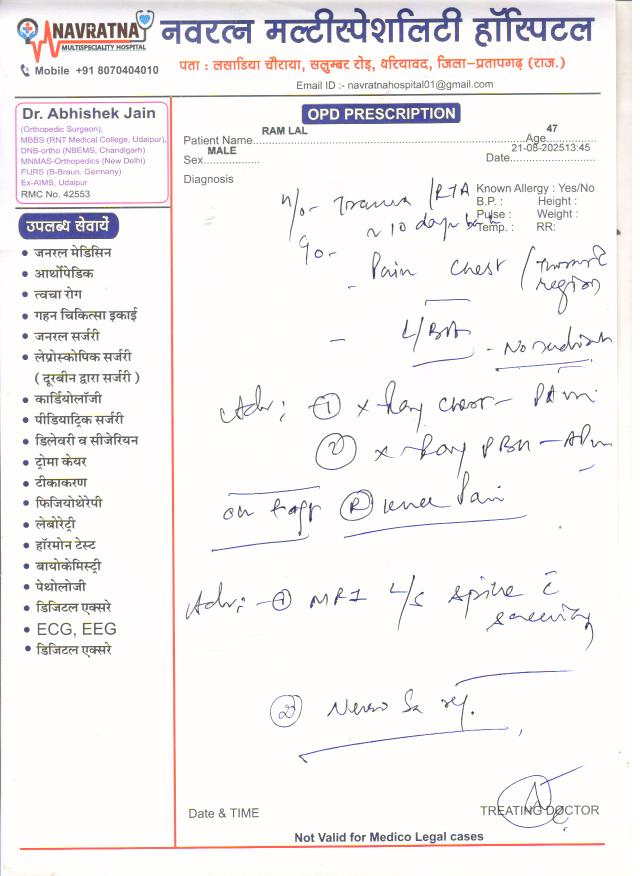 NAVRATNA
MULTISPECIALITY HOSPITAL
नवरत्न मल्टीस्पेशलिटी हॉस्पिटल
Mobile +91 8070404010
पता : लसाडिया चौराया, सलुम्बर रोड़, धरियावद, जिला-प्रतापगढ़ (राज.)
Email ID :- navratnahospital01@gmail.com
Dr. Abhishek Jain
(Orthopedic Surgeon),
MBBS (RNT Medical College, Udaipur),
DNB-ortho (NBEMS, Chandigarh)
MNMAS-Orthopedics (New Delhi)
FIJRS (B-Braun, Germany)
Ex-AIMS, Udaipur
RMC No. 42553
उपलब्ध सेवायें
जनरल मेडिसिन
आर्थोपेडिक
त्वचा रोग
गहन चिकित्सा इकाई
जनरल सर्जरी
लेप्रोस्कोपिक सर्जरी
( दूरबीन द्वारा सर्जरी )
कार्डियोलॉजी
पीडियाट्रिक सर्जरी
डिलेवरी व सीजेरियन
ट्रोमा केयर
टीकाकरण
फिजियोथेरेपी
लेबोरेट्री
हॉरमोन टेस्ट
बायोकेमिस्ट्री
पेथोलोजी
डिजिटल एक्सरे
ECG, EEG
डिजिटल एक्सरे
OPD PRESCRIPTION
Patient Name RAM LAL Age 47
Sex MALE Date 21-08-2025 13:45
Diagnosis
Known Allergy : Yes/No
B.P. : Height :
Pulse : Weight :
Temp. : RR:
H/o - Trauma / RTA
~ 10 days back
C/o -
- Pain chest / Thoracic region
- L/BA
Adv: ① X-Ray chest - PA
② X-Ray PBH - AP
Ⓡ knee Pain
Adv: - ① MRI L/S spine c̄ screening
②
Date & TIME
TREATING DOCTOR
Not Valid for Medico Legal cases